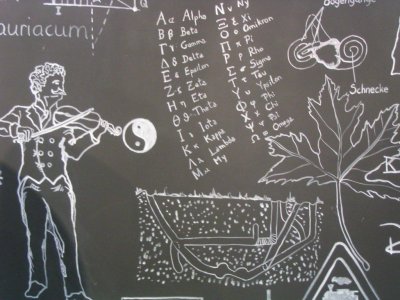 auriacum
Αα Alpha
Ββ Beta
Γγ Gamma
Δδ Delta
Εε Epsilon
Ζζ Zeta
Ηη Eta
Θϑ Theta
Ιι Iota
Κκ Kappa
Λλ Lambda
Μμ My
Νν Ny
Ξξ Xi
Οο Omikron
Ππ Pi
Ρρ Rho
Σσ Sigma
Ττ Tau
Υυ Ypsilon
Φφ Phi
Χχ Chi
Ψψ Psi
Ωω Omega
Bogengänge
Schnecke